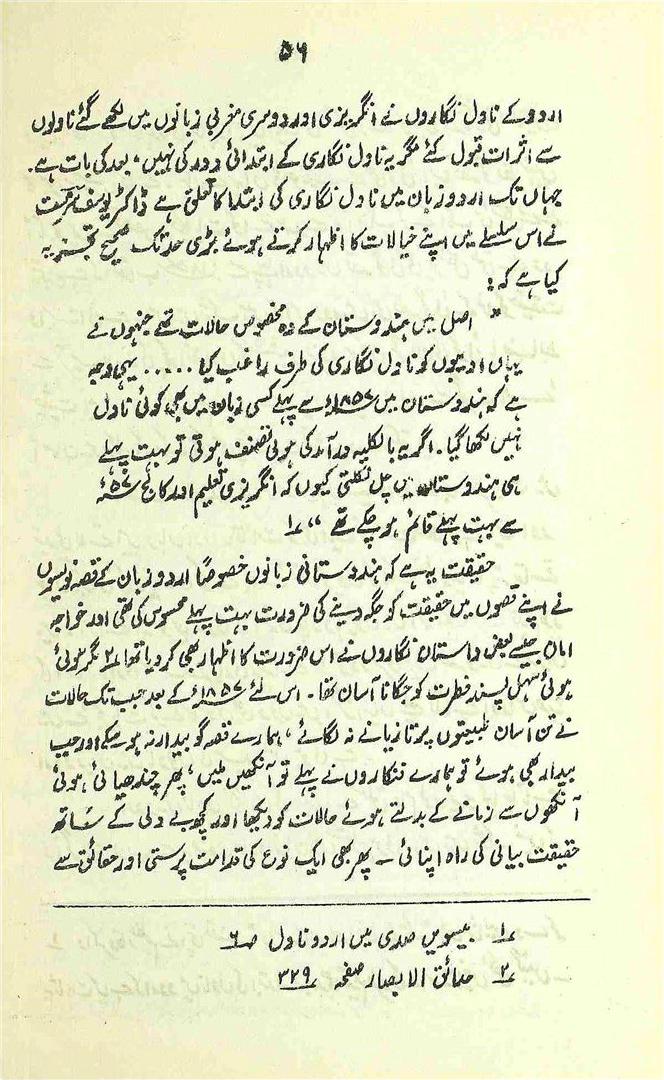 ۵۶
اردو کے ناول نگاروں نے انگریزی اور دوسری مغربی زبانوں میں لکھے گئے ناولوں
سے اثرات قبول کئے مگر یہ ناول نگاری کے ابتدائی دور کی نہیں، بعد کی بات ہے۔
جہاں تک اردو زبان میں ناول نگاری کی ابتدا کا تعلق ہے ڈاکٹر یوسف سرمست
نے اس سلسلے میں اپنے خیالات کا اظہار کرتے ہوئے بڑی حد تک صحیح تجزیہ
کیا ہے کہ:
" اصل میں ہندوستان کے وہ مخصوص حالات تھے جنہوں نے
یہاں ادیبوں کو ناول نگاری کی طرف راغب کیا ..... یہی وجہ
ہے کہ ہندوستان میں ۱۸۵۷ء سے پہلے کسی زبان میں بھی کوئی ناول
نہیں لکھا گیا۔ اگر یہ بالکلیہ درآمد کی ہوئی تصنف ہوتی تو بہت پہلے
ہی ہندوستان میں چل نکلتی کیوں کہ انگریزی تعلیم اور کالج ۵۷ء
سے بہت پہلے قائم ہو چکے تھے " ۱؎
حقیقت یہ ہے کہ ہندوستانی زبانوں خصوصاً اردو زبان کے قصہ نویسوں
نے اپنے قصوں میں حقیقت کو جگہ دینے کی ضرورت بہت پہلے محسوس کی تھی اور خواجہ
امان جیسے بعض داستان نگاروں نے اس ضرورت کا اظہار بھی کر دیا تھا ۲؎ مگر سوئی
ہوئی سہل پسند فطرت کو جگانا آسان تھا۔ اس لئے ۱۸۵۷ء کے بعد جب تک حالات
نے تن آسان طبیعتوں پر تازیانے نہ لگائے، ہمارے قصہ گو بیدار نہ ہو سکے اور جب
بیدار بھی ہوئے تو ہمارے فنکاروں نے پہلے تو آنکھیں ملیں، پھر چندھیائی ہوئی
آنکھوں سے زمانے کے بدلتے ہوئے حالات کو دیکھا اور کچھ بے دلی کے ساتھ
حقیقت بیانی کی راہ اپنائی ـ پھر بھی ایک نوع کی قدامت پرستی اور حقائق سے
۱؎ بیسویں صدی میں اردو ناول صـ ۶
۲؎ حدائق الابصار صفحہ ۳۲۹